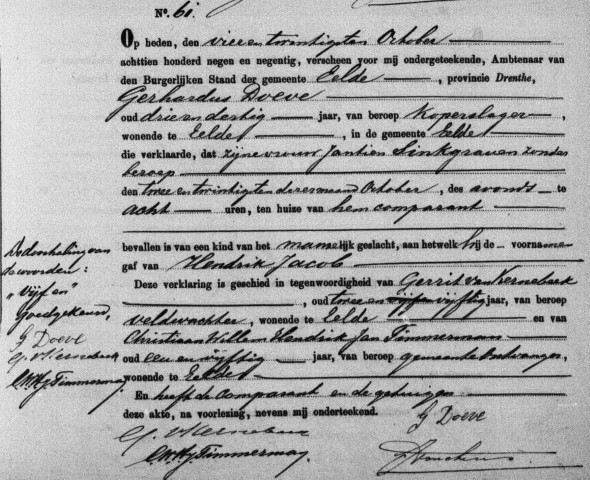 No. 61.
Op heden, den vier en twintigsten October
achttien honderd negen en negentig, verscheen voor mij ondergeteekende, Ambtenaar van
den Burgerlijken Stand der gemeente Eelde, provincie Drenthe,
Gerhardus Doeve
oud drie en dertig jaar, van beroep Koperslager,
wonende te Eelde, in de gemeente Eelde
die verklaarde, dat zijne vrouw Jantien Sinkgraven zonder
beroep
den twee en twintigsten dezer maand October, des avonds te
acht uren, ten huize van hem comparant
bevallen is van een kind van het mannelijk geslacht, aan hetwelk hij de voornamen
gaf van Hendrik Jacob
Deze verklaring is geschied in tegenwoordigheid van Gerrit van Kernebeek
, oud twee en vijftig jaar, van beroep
veldwachter, wonende te Eelde en van
Christiaan Willem Hendrik Jan Timmerman
oud een en vijftig jaar, van beroep gemeente Ontvanger,
wonende te Eelde
En heeft de comparant en de getuigen
deze akte, na voorlezing, nevens mij onderteekend.
G Doeve
G. v Kernebeek
C.W.H.J. Timmerman
De doorhaling van
de woorden:
"vijf en"
goedgekeurd,
G Doeve
G. v Kernebeek
C.W.H.J. Timmerman